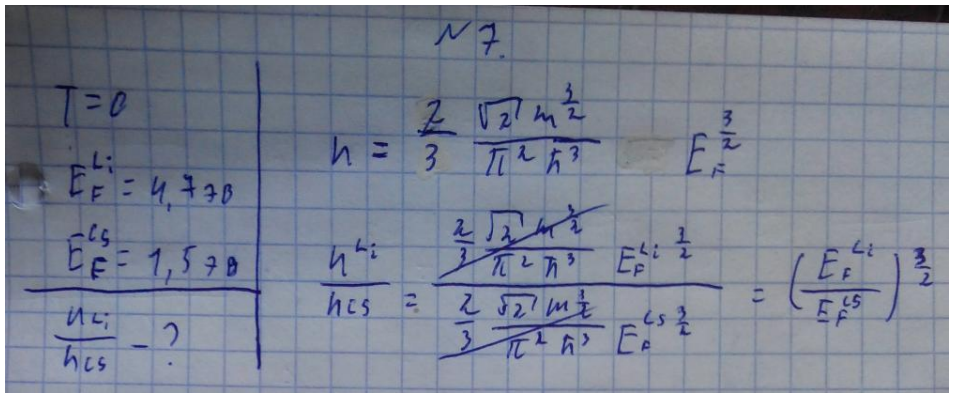 №7.
T = 0
E_F^{Li} = 4,7 эВ
E_F^{Cs} = 1,5 эВ
n_{Li}/n_{Cs} - ?
n = 2/3 · √2 m^{3/2}/(π² ħ³) E_F^{3/2}
n^{Li}/n_{Cs} = (2/3 · √2 m^{3/2}/(π² ħ³) E_F^{Li 3/2})/(2/3 · √2 m^{3/2}/(π² ħ³) E_F^{Cs 3/2}) = (E_F^{Li}/E_F^{Cs})^{3/2}